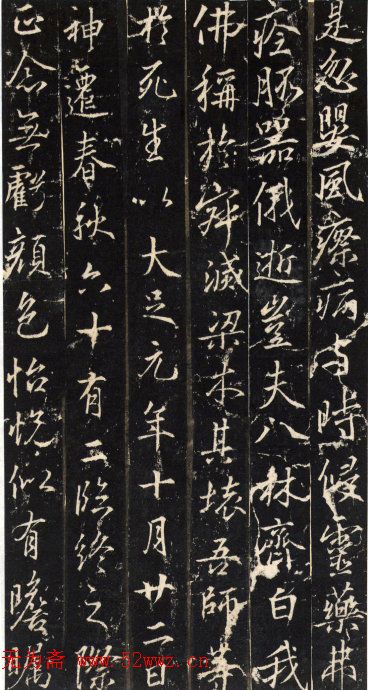 是忽嬰風瘵病与時侵靈藥弗
痊胗器俄逝豈夫八林濟白我
佛稱於寂滅梁木其壞吾師等
於死生以大足元年十月廿二日
神遷春秋六十有二臨終之際
正念無虧顏色怡悅似有瞻矚
无为斋 www.52wwz.cn